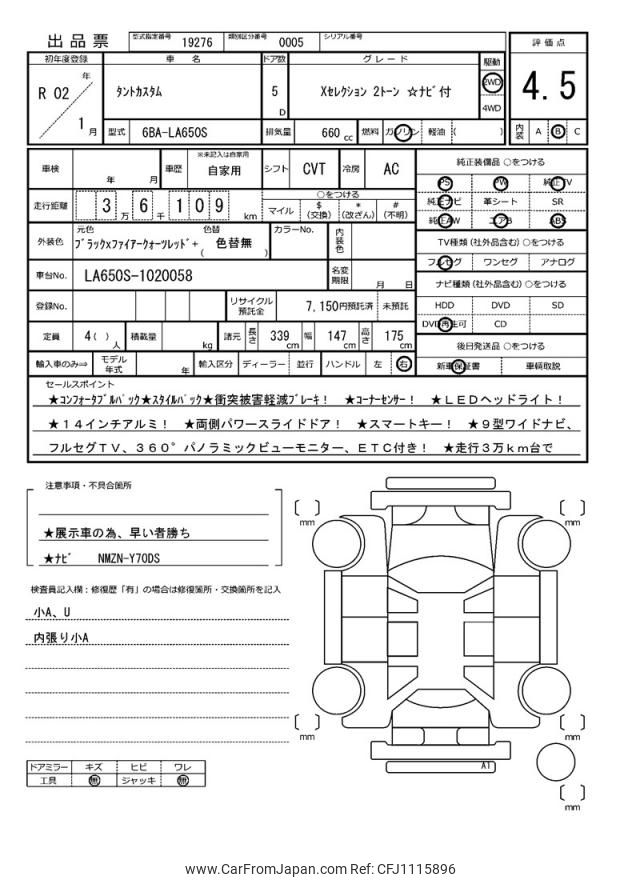 出品票 型式指定番号 19276 類別区分番号 0005 シリアル番号
評価点
4.5
内装 A B C
初年度登録 車 名 ドア数 グレード 駆動
R 02 年 1 月
タントカスタム 5 D Xセレクション 2トーン ☆ナビ付 2WD 4WD
型式 6BA-LA650S 排気量 660 cc 燃料 ガソリン 軽油 ( )
車検 年 月 車歴 ※未記入は自家用 自家用 シフト CVT 冷房 AC
走行距離 3 万 6 千 1 0 9 km
○をつける
マイル $ (交換) * (改ざん) # (不明)
外装色 元色 色替 カラーNo. 内装色
ブラックxファイアークォーツレッド+ ( 色替無 )
車台No. LA650S-1020058 名変期限 月 日
登録No. リサイクル預託金 7,150円預託済 未預託
定員 4 ( ) 人 積載量 kg 諸元 長さ 339 cm 幅 147 cm 高さ 175 cm
輸入車のみ⇒ モデル年式 年 輸入区分 ディーラー 並行 ハンドル 左 右
純正装備品 ○をつける
PS PW 純正TV
純正ナビ 革シート SR
純正AW エアB ABS
TV種類 (社外品含む) ○をつける
フルセグ ワンセグ アナログ
ナビ種類 (社外品含む) ○をつける
HDD DVD SD
DVD再生可 CD
後日発送品 ○をつける
新車保証書 車輌取説
セールスポイント
★コンフォータブルパック★スタイルパック★衝突被害軽減ブレーキ! ★コーナーセンサー! ★LEDヘッドライト!
★14インチアルミ! ★両側パワースライドドア! ★スマートキー! ★9型ワイドナビ、
フルセグTV、360°パノラミックビューモニター、ETC付き! ★走行3万km台で
注意事項・不具合箇所
★展示車の為、早い者勝ち
★ナビ NMZN-Y70DS
検査員記入欄:修復歴「有」の場合は修復箇所・交換箇所を記入
小A、U
内張り小A
ドアミラー キズ ヒビ ワレ
工具 無 ジャッキ 無
mm
mm
mm
mm
mm
A1
www.CarFromJapan.com Ref: CFJ1115896